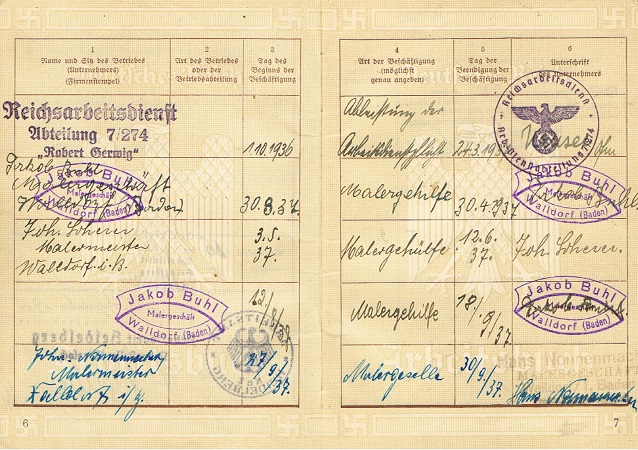 1
Name und Sitz des Betriebes
(Unternehmers)
(Firmenstempel)
2
Art des Betriebes
oder der
Betriebsabteilung
3
Tag des
Beginns der
Beschäftigung
Reichsarbeitsdienst
Abteilung 7/274
„Robert Gerwig“
1.10.1936
Jakob Buhl
Malergeschäft
Walldorf (Baden)
Jakob Buhl
Malergeschäft
Walldorf (Baden)
30.3.37.
Joh.
Malermeister
Walldorf i. B.
3.5.
37.
Jakob Buhl
Malergeschäft
Walldorf (Baden)
12/
Malermeister
27/
9/
37.
6
4
Art der Beschäftigung
(möglichst
genau angeben)
5
Tag der
Beendigung der
Beschäftigung
6
Unterschrift
des Unternehmers
Ableistung der
Arbeitsdienstpflicht
24.3.
Reichsarbeitsdienst
7/274
Malergehilfe
30.4.1937
Jakob Buhl
Malergeschäft
Walldorf (Baden)
Malergehülfe
12.6.
37.
Joh.
Malergehilfe
18/
9/
37.
Jakob Buhl
Walldorf (Baden)
Malergeselle
30/
9/
37.
Hans
Baden
Hans
7